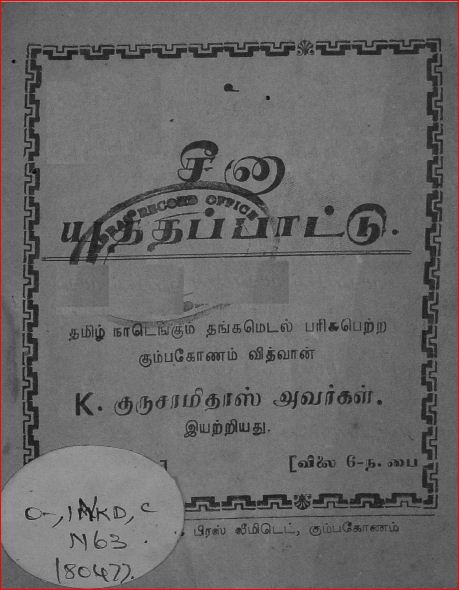 உ
சீன
யுத்தப்பாட்டு.
RECORD OFFICE
தமிழ் நாடெங்கும் தங்கமெடல் பரிசுபெற்ற
கும்பகோணம் வித்வான்
K. குருசாமிதாஸ் அவர்கள்.
இயற்றியது.
] [விலை 6-ந. பை
பிரஸ் லிமிடெட், கும்பகோணம்
O-, 1NKD, C
N63
(8047).